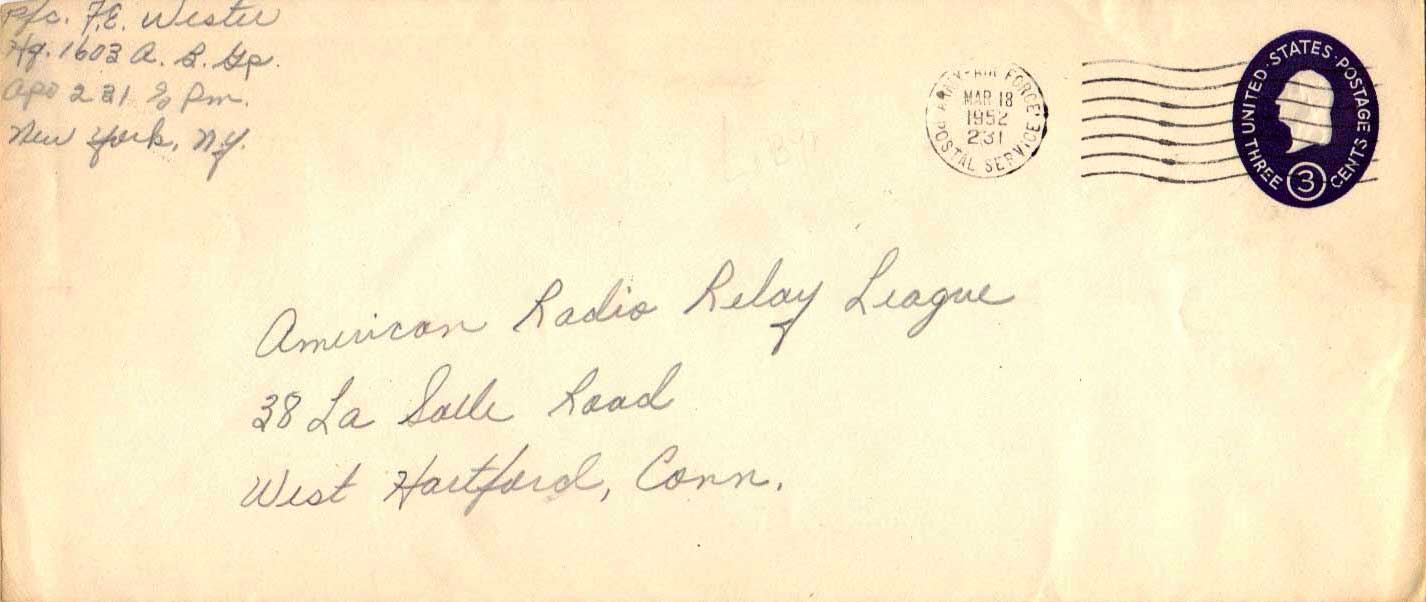 Pfc. F.E. Wester
Hq. 1603 A. B. Gp.
Apo 231 % Pm.
New York, NY.
ARMY-AIR FORCE
MAR 18
1952
231
POSTAL SERVICE
UNITED STATES POSTAGE
THREE 3 CENTS
American Radio Relay League
38 La Salle Road
West Hartford, Conn.